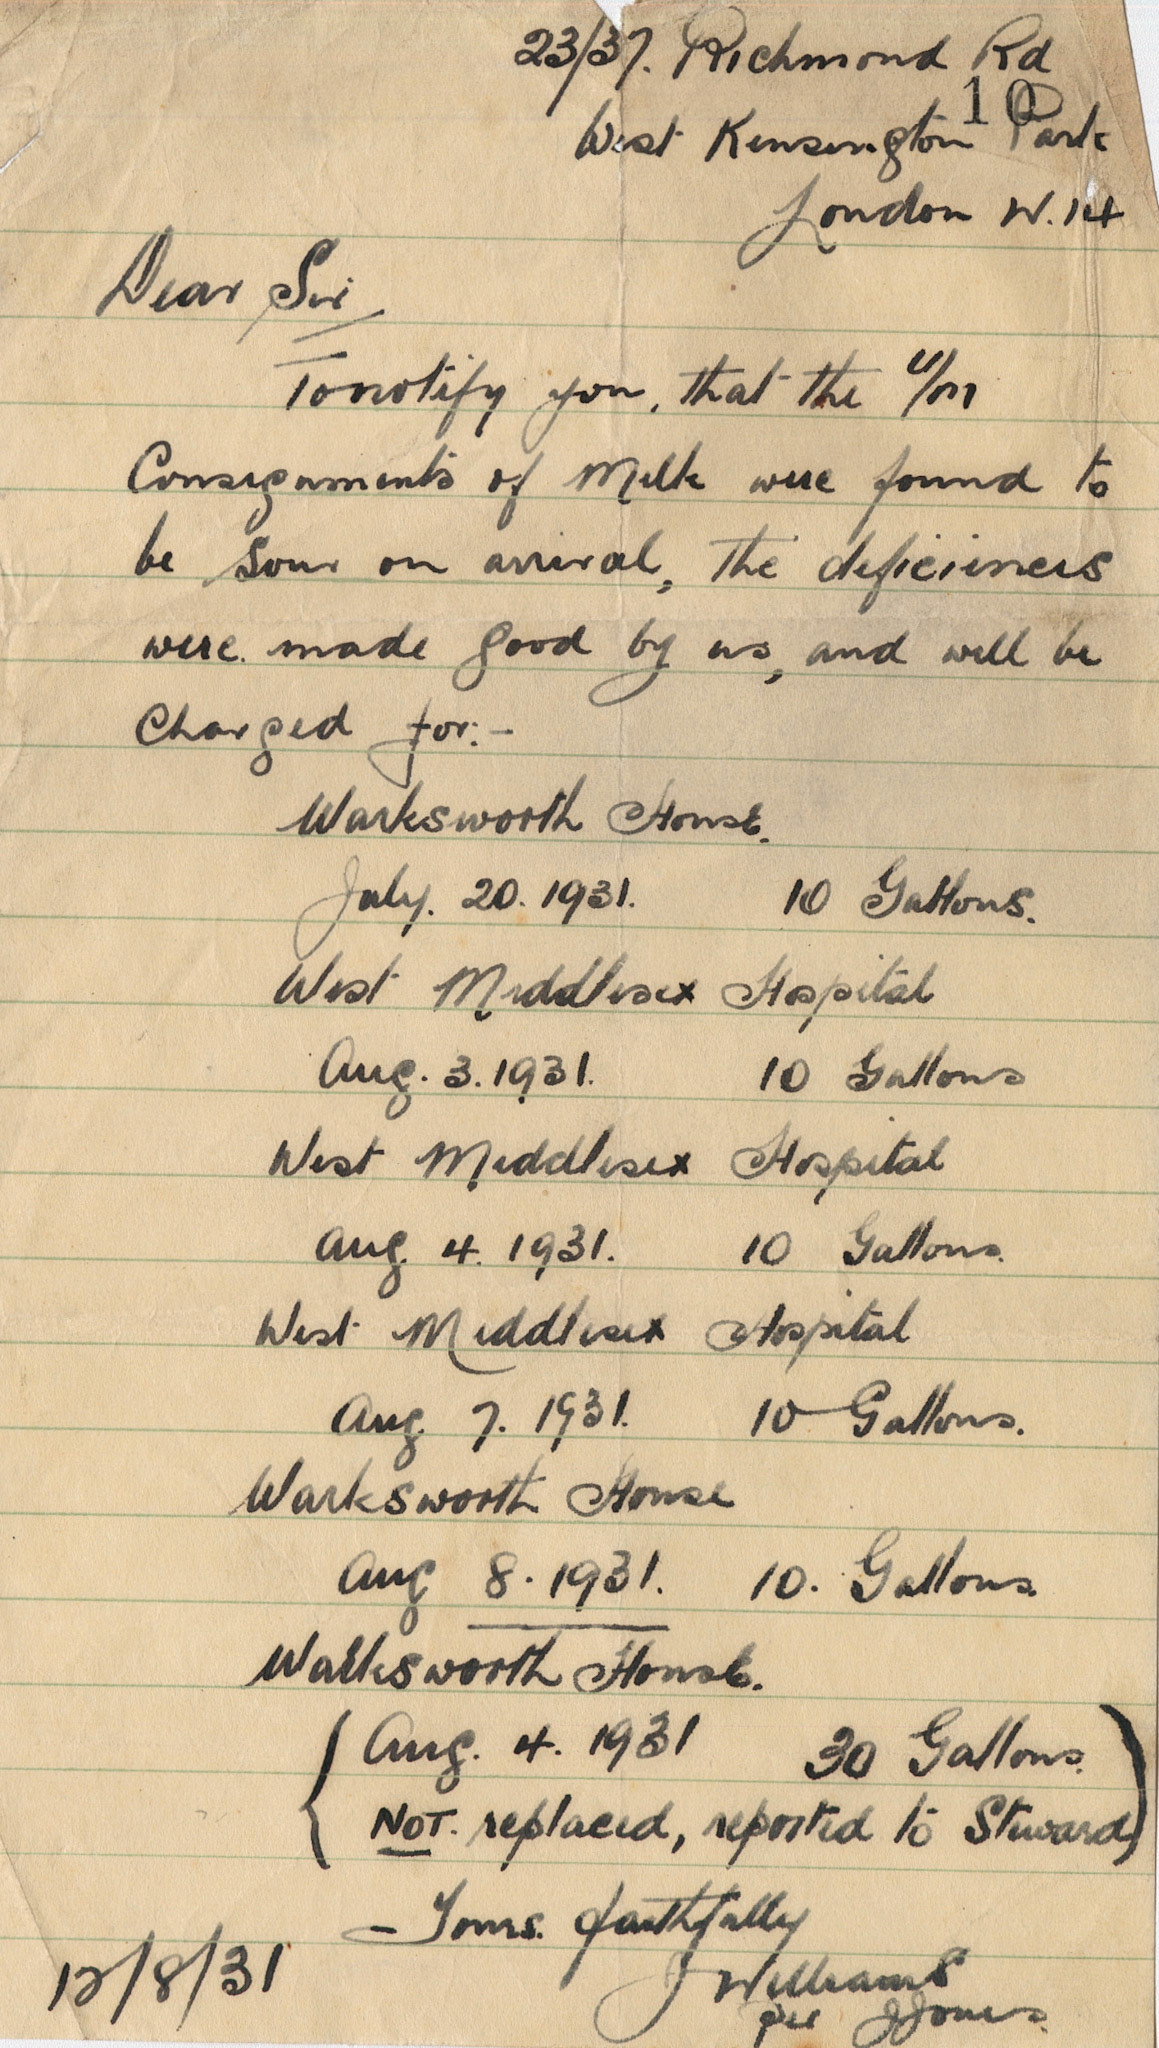 23/37. Richmond Rd
10
West Kensington Park
London W. 14
Dear Sir
To notify you, that the u/m
Consignments of Milk were found to
be sour on arrival, the deficiences
were made good by us, and will be
Charged for:-
Warksworth House.
July. 20. 1931. 10 Gallons.
West Middlesex Hospital
Aug. 3. 1931. 10 Gallons
West Middlesex Hospital
Aug. 4. 1931. 10 Gallons.
West Middlesex Hospital
Aug. 7. 1931. 10 Gallons.
Warksworth House
Aug 8. 1931. 10. Gallons.
Walksworth House.
Aug. 4. 1931 30 Gallons.
NOT. replaced, reported to Steward
- Yours. faithfully
J Williams
12/8/31
per J Jones.